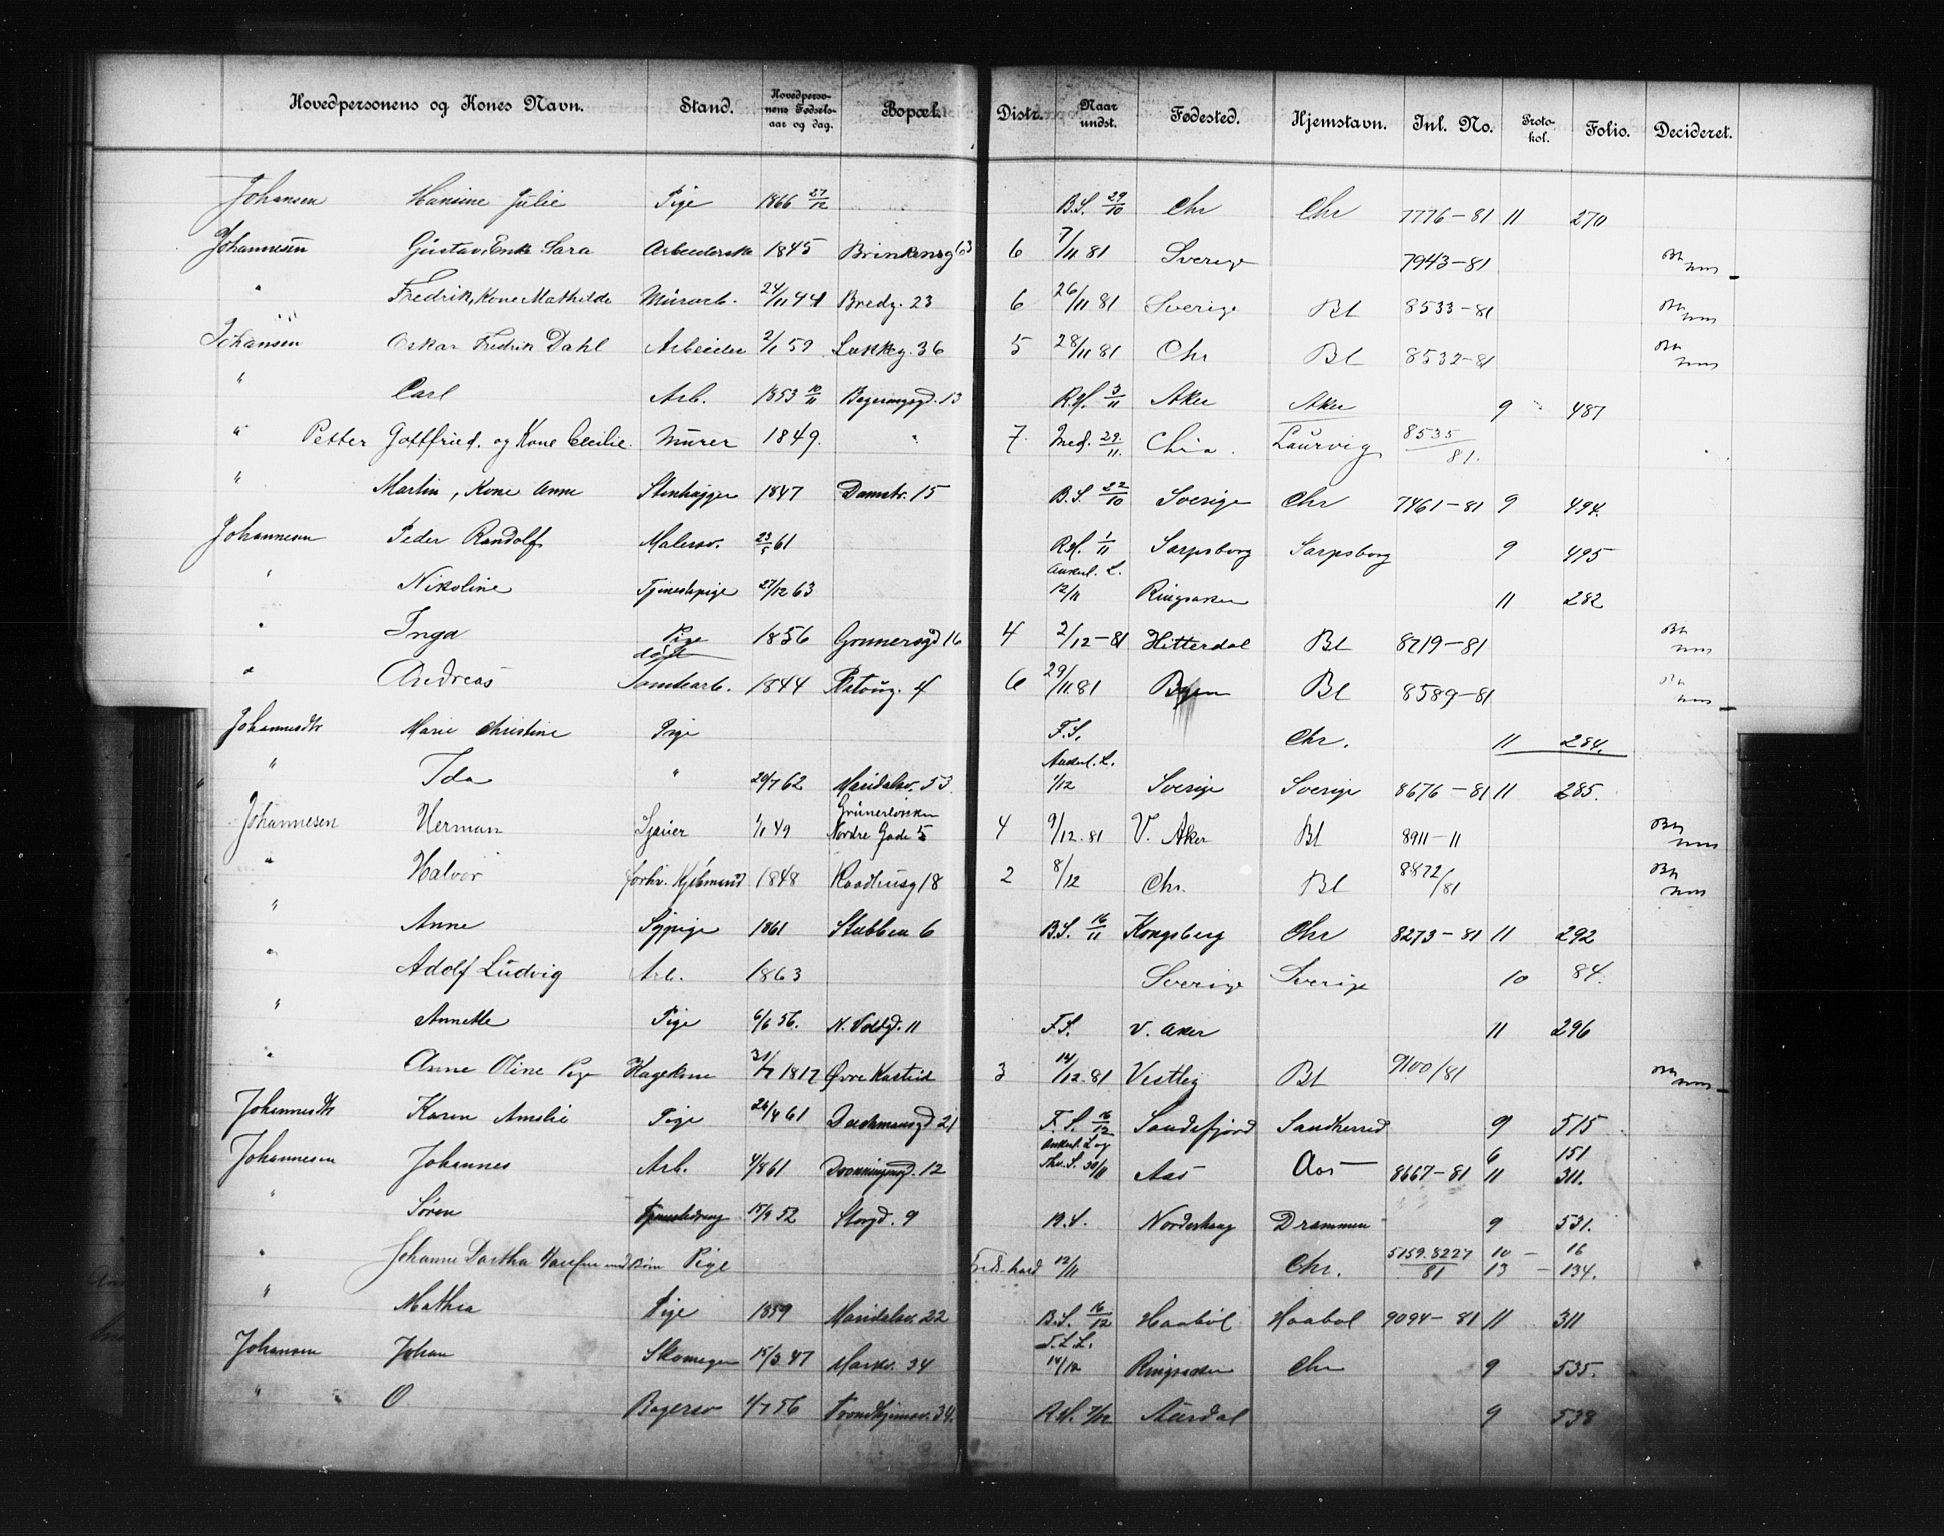 Hovedpersonens og Kones Navn. Stand. Hovedpersonens Fødselsaar og dag. Bopæl. Distr. Naar undst. Fødested. Hjemstavn. Inl. No. Protokol. Folio. Decideret.
Johansen Hansine Julie Pige 1866 27/12 B.S. 29/10 Chr Chr 7776-81 11 270
Johannesen Gustav, Enke Sara Arbeiderske 1845 6 7/11 81 Sverige 7943-81
" Fredrik, Kone Mathilde Murarb. 24/11 44 Bredg. 23 6 26/11 81 Sverige Bl 8533-81
Johansen Oskar Fredrik Dahl Arbeider 2/1 59 Lakkeg. 36 5 28/11 81 Chr Bl 8532-81
" Carl Arb. 1853 10/11 13 3/11 Aker Aker 9 487
" Petter Gottfried. og Kone Cecilie. Murer 1849. " 7 Med. 29/11. Chra. Laurvig 8535/81.
" Martin, Kone Anne Stenhugger 1847 Damstr. 15 B.S. 22/10 Sverige Chr 7461-81 9 494.
Johannesen Peder Randolf Malersv. 23/5 61 1/11 Sarpsborg Sarpsborg 9 495
" Nikoline Tjenestepige 27/12 63 Ankel. L. 12/11 Ringsaker 11 282
" Inga Pige død 1856 16 4 2/12-81 Hitterdal Bl 8719-81
" Andreas Tomtearb. 1844 4 6 29/11.81 Byen Bl 8589-81
Johannesdtr Marie Christine Pige F.S. Chr. 11 284.
" Ida " 62 Maridalsv. 53 Ankel. L. 1/12 Sverige Sverige 8676-81 11 285.
Johannesen Herman Sjauer 1/1 49 Grünerløkken Nordre Gade 5 4 9/12.81 V. Aker Bl 8911-11
" Halvor forhv. Kjøbmand 1848 Raadhusg 18 2 8/12 Chr. Bl 8872/81
" Anne Sypige 1861 Stubben 6 B.S. 16/11 Kongsberg Chr 8273-81 11 292
" Adolf Ludvig Arb. 1863 Sverige Sverige 10 84.
" Annette Pige 6/6 56. N. Voldgd. 11 F.S. V. Aker 11 296
" Anne Oline Pige 1817 3 14/12.81 Vestby Bl 9100/81
Johannesdtr Karen Amalie Pige 26/4 61 Deichmansgd 21 F.S. 16/12 Sandefjord Sandherred 9 515
Johannesen Johannes Arb. 4/8 61 Dronningensgd. 12 Ankel. L og 30/11 Aas Aas 8667-81 6 151 11 311.
" Søren 15/9 52 Storgd. 9 B.S. Norderhaug Drammen 9 531.
" Johanne Dorthea med Børn Pige 12/11 Chr. 5159.8227/81 10 - 16 13 - 134.
" Mathea Pige 1859 Maridalsv. 22 B.S. 16/12 Haabøl Haabøl 9094-81 11 311
Johansen Johan Skomager 15/3 47 Markv. 34 14/12 Ringsaker Chr 9 535.
" O. Bagersv 1/7 56 Trondhjemsv. 34. 7/12 Aurdal 9 538